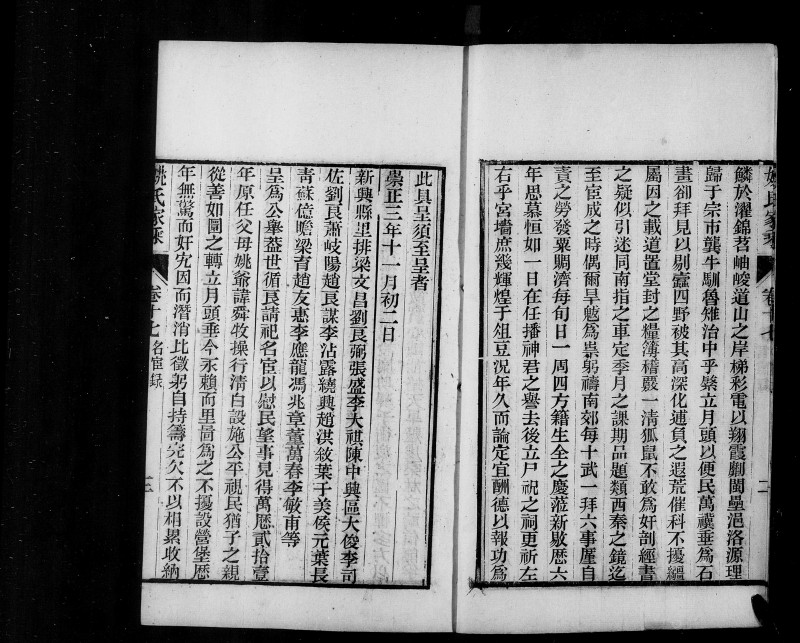 鱗於濯錦茗岫崚道山之岸梯彩電以翔霞劚閩壘浥洛源理
歸于宗市龔牛馴魯雉治中乎縏立月頭以便民萬禩垂爲石
畫卻拜見以剔蠹四野被其高深化逋負之遐荒催科不擾繼
屬因之載道置堂封之糧簿稽覈一清狐鼠不敢爲奸剖經書
之疑似引迷同南指之車定季月之課期品題類西秦之鏡迄
至宦成之時偶爾旱魃爲祟躬禱南郊每十武一拜六事厪自
責之勞發粟賙濟每旬日一周四方籍生全之慶蒞新歇歷六
年思慕恒如一日在任播神君之譽去後立尸祝之祠更祈左
右乎宮墻庶幾輝煌于俎豆況年久而論定宜酬德以報功爲
此具呈須至呈者
崇正三年十一月初二日
新興縣里排梁文昌劉良弼張盛李大祺陳中興區大俊李司
佐劉良蕭岐陽趙良謀李沾露繞興趙淇敘葉于美侯元葉長
青蘇億瞻梁育趙友惠李應龍馮兆章董萬春李敏甫等
呈爲公舉蓋世循良請祀名宦以慰民望事見得萬歷貳拾壹
年原任父母姚爺諱舜牧操行清白設施公平視民猶子之親
從善如圜之轉立月頭垂今永賴而里啚爲之不擾設營堡歷
年無驚而奸宄因而潛消比徵躬自持籌完欠不以相累收納
姚氏家乘
卷十七 名宦錄
三
姚氏家乘
卷十七
二